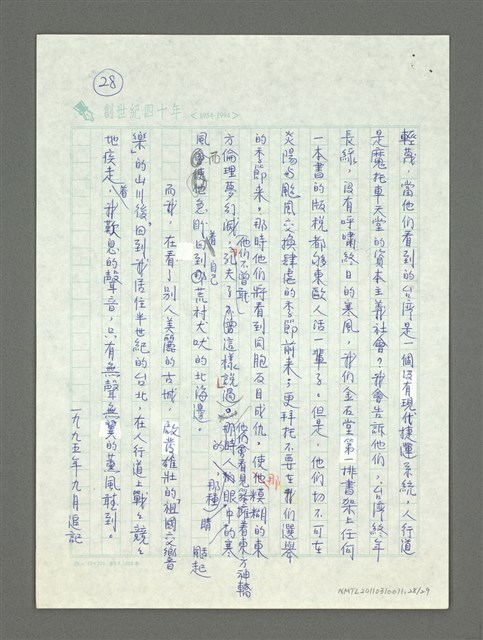 28
創世紀四十年 <1954-1994>
輕蔑,當他們看到的台灣是一個沒有現代捷運系統,人行道
是魔托車天堂的資本主義社會?我會告訴他們,台灣終年
長綠,沒有呼嘯終日的暴風,我們金石堂第一排書架上任何
一本書的版稅都夠東歐人活一輩子。但是,他們切不可在
炎陽與颱風交換肆虐的季節前來;更拜托不要在我們選舉
的季節來,那時他們將看到同胞反目成仇,使他那模糊的東
方倫理夢幻滅,
他們不曾說
孔夫子不曾這樣說過。
他們會看見
那時人的眼中的寒
風
而
急
著
回到
自己
那荒村犬吠的北海邊。
而我,在看了別人美麗的古城,啟發雄壯的"祖國交響音
樂"的山川後,回到我居住半世紀的台北,在人行道上戰戰兢兢
地俟走著,我歎息的聲音,只有無聲無翼的薰風聽到。
一九九五年九月追記
NMTL20110310011.28/29